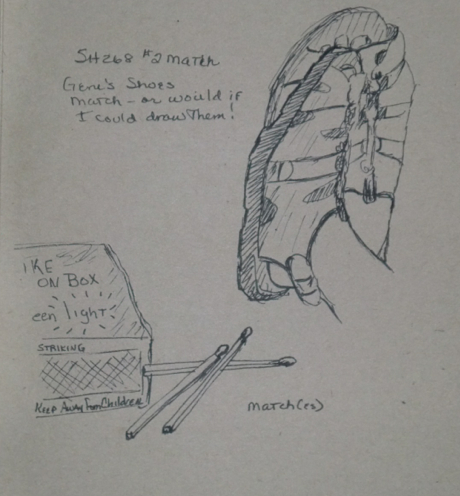 SH268 #2 Match
Gene's Shoes
match - or would if
I could draw Them!
IKE
ON BOX
een light
STRIKING
Keep Away From Children
match(es)